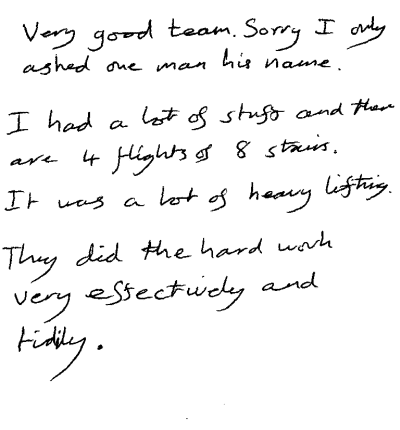 Very good team. Sorry I only
asked one man his name.
I had a lot of stuff and there
are 4 flights of 8 stairs.
It was a lot of heavy lifting.
They did the hard work
very effectively and
tidily.